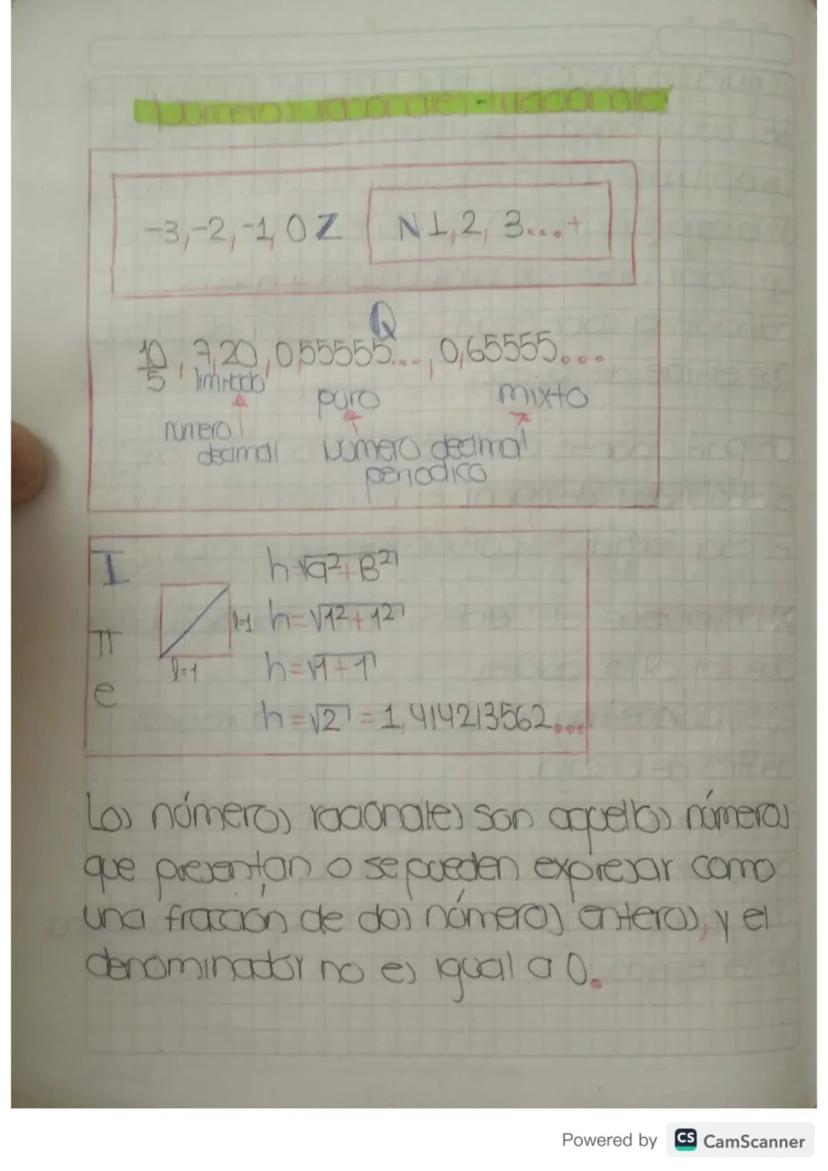 Números racionales - irracionales
-3, -2, -1, 0 Z N 1, 2, 3...+
Q
10/5, 7,20, 0,55555..., 0,65555...
limitado puro mixto
número decimal Número decimal periodico
I h √a²+B²
l=1 h=√1²+1²
π l=1 h=√1+1
e h=√2 = 1,414213562...
Los números racionales son aquellos números
que presentan o se pueden expresar como
una fracción de dos números enteros, y el
denominador no es igual a 0.
Powered by CS CamScanner